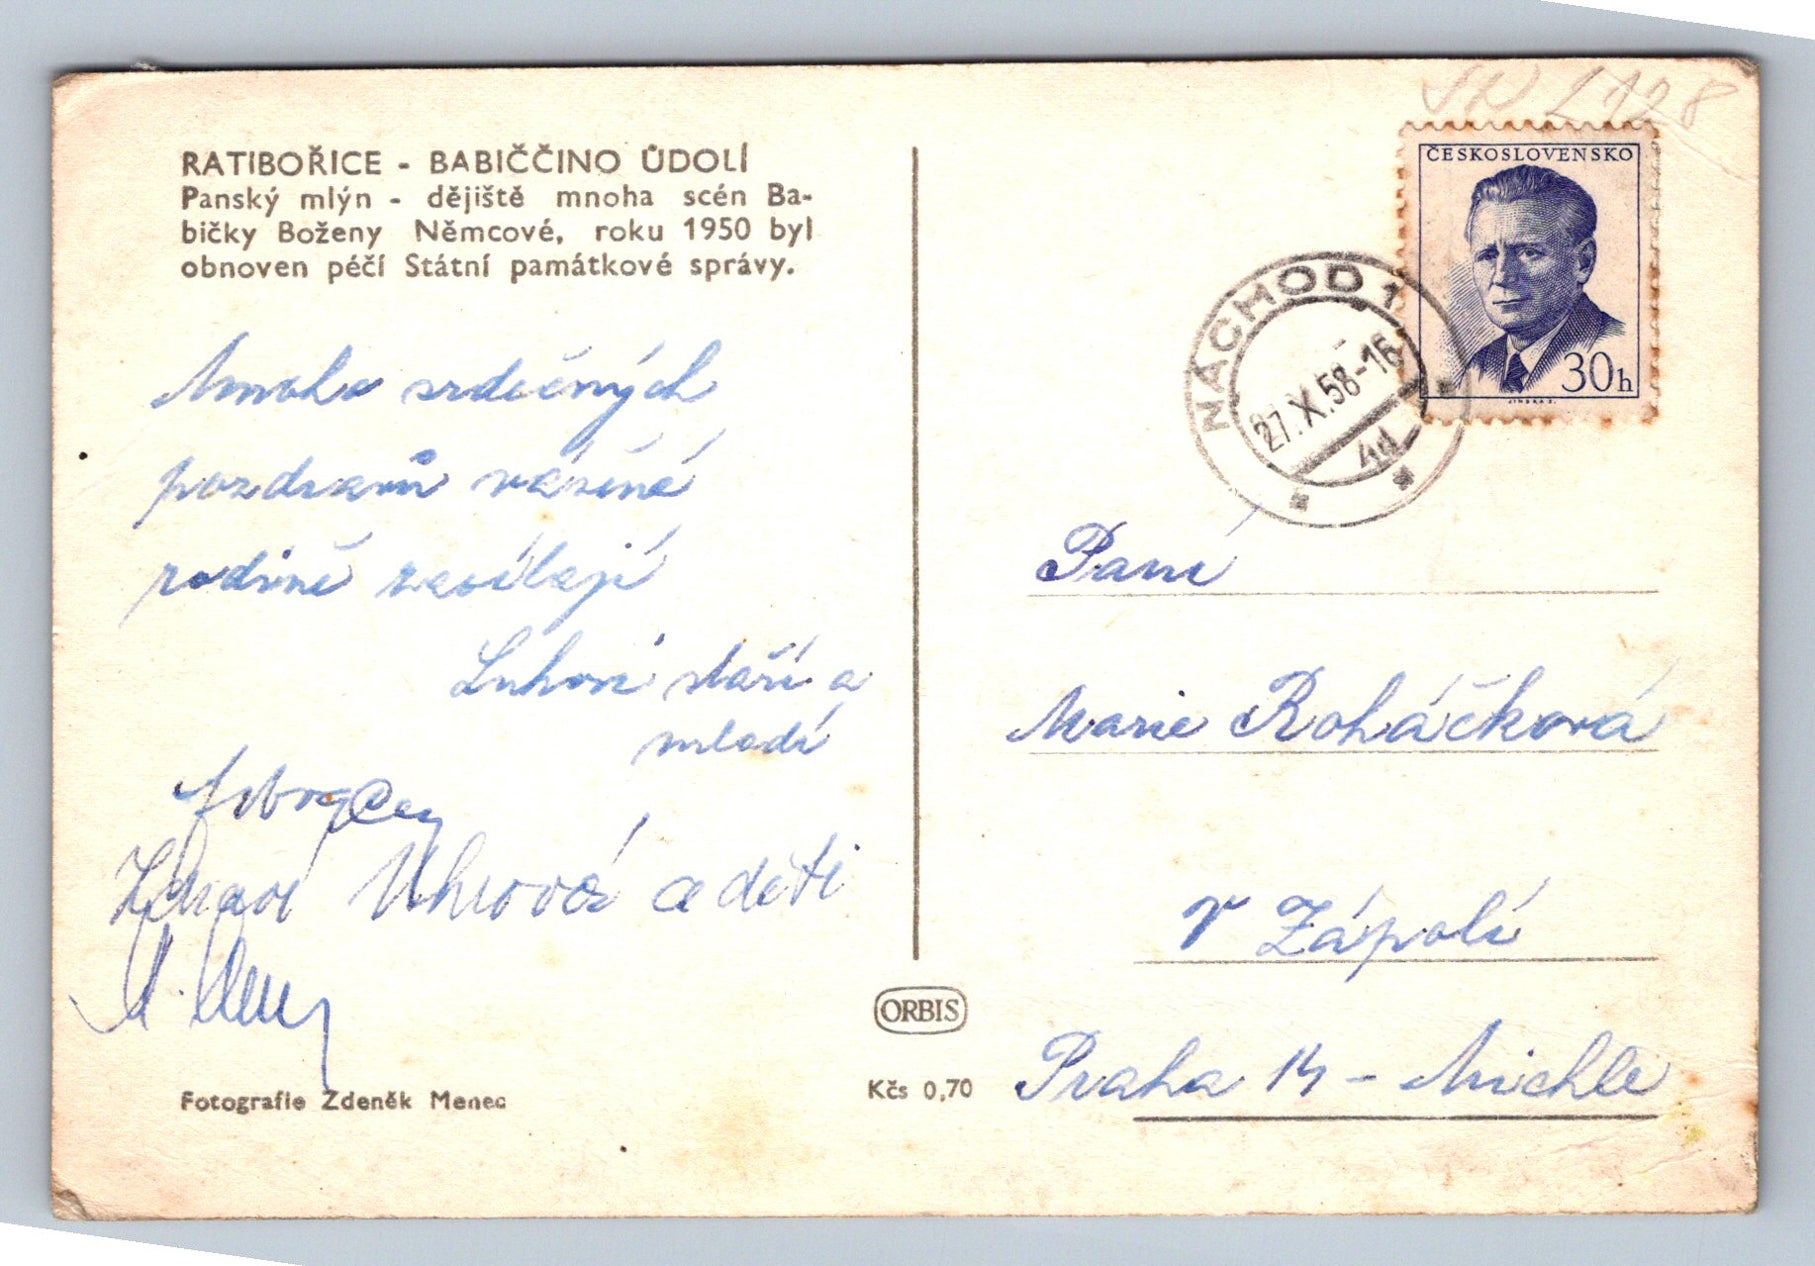 RATIBOŘICE - BABIČČINO ÚDOLÍ
Panský mlýn - dějiště mnoha scén Ba-
bičky Boženy Němcové, roku 1950 byl
obnoven péčí Státní památkové správy.
Mnoho srdečných
pozdravů vážené
rodině zasílají
Luhovi staří a
mladí
Zdraví Uhrová a děti
Fotografie Zdeněk Menec
ORBIS
Kčs 0,70
2128
ČESKOSLOVENSKO
30h
JINDRA S.
NÁCHOD 1
27.X.58-16
4d
Paní
Marie Roháčková
v Zápolí
Praha 14 - Michle